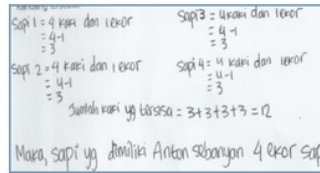 Sapi 1 = 4 kaki dan 1 ekor
= 4-1
= 3
Sapi 2 = 4 kaki dan 1 ekor
= 4-1
= 3
Sapi 3 = 4 kaki dan 1 ekor
= 4-1
= 3
Sapi 4 = 4 kaki dan 1 ekor
= 4-1
= 3
Jumlah kaki yg tersisa = 3+3+3+3 = 12
Maka, sapi yg dimiliki Anton sebanyan 4 ekor sap